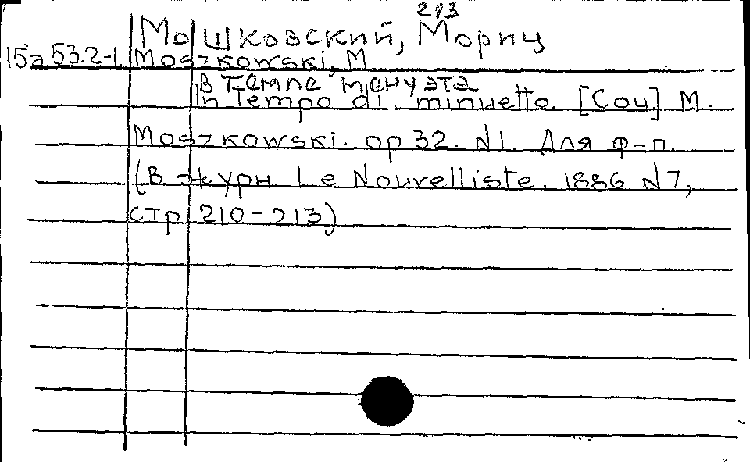 213
Мошковский, Мориц
15а 53.2-1 Moszkowski, M
В темпе менуэта
In Tempo di minuetto. [Соч] М.
Moszkowski. op 32. N1. Для ф-п.
(В журн. Le Nouvelliste. 1886 N7,
стр 210-213)